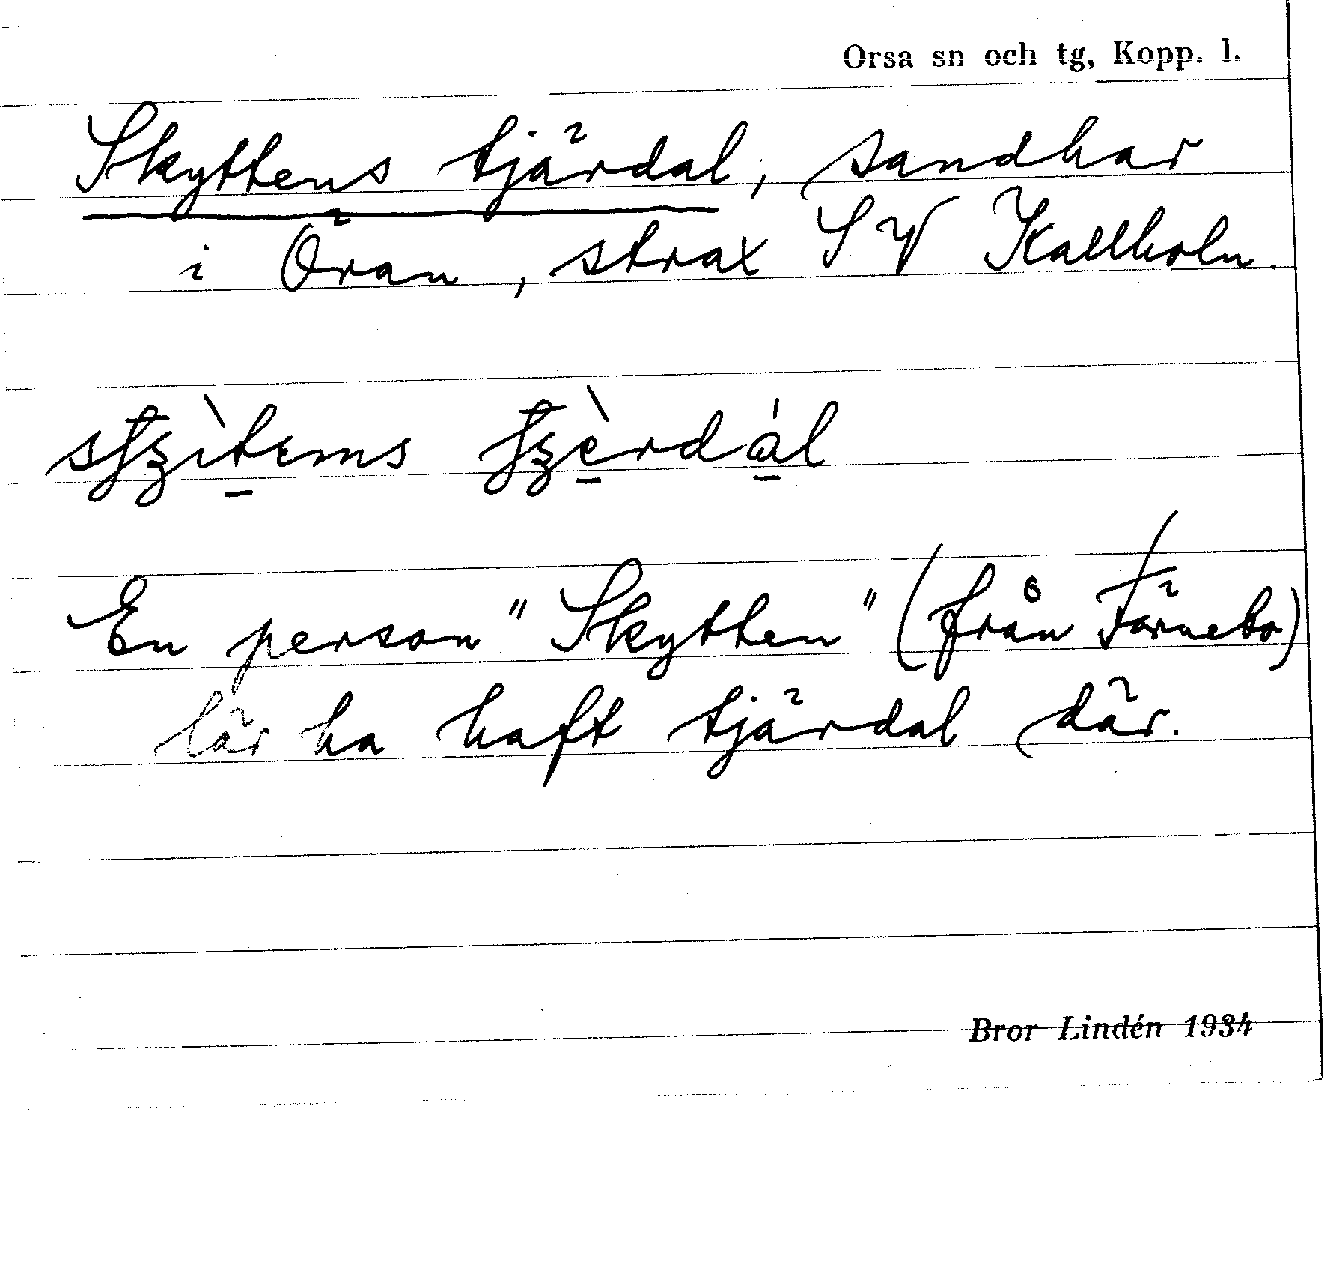 Orsa sn och tg, Kopp. l.
Skyttens tjärdal, sandhar
i Öran, strax SV Kallholn.
En person "Skytten" (från Färnebo)
lär ha haft tjärdal där.
Bror Lindén 1934